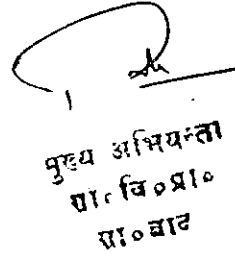 मुख्य अभियन्ता
गा. वि०प्रा०
गा०बाद